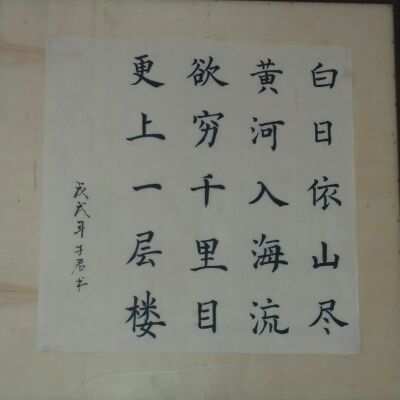 白日依山尽
黄河入海流
欲穷千里目
更上一层楼
戊戌年子君书